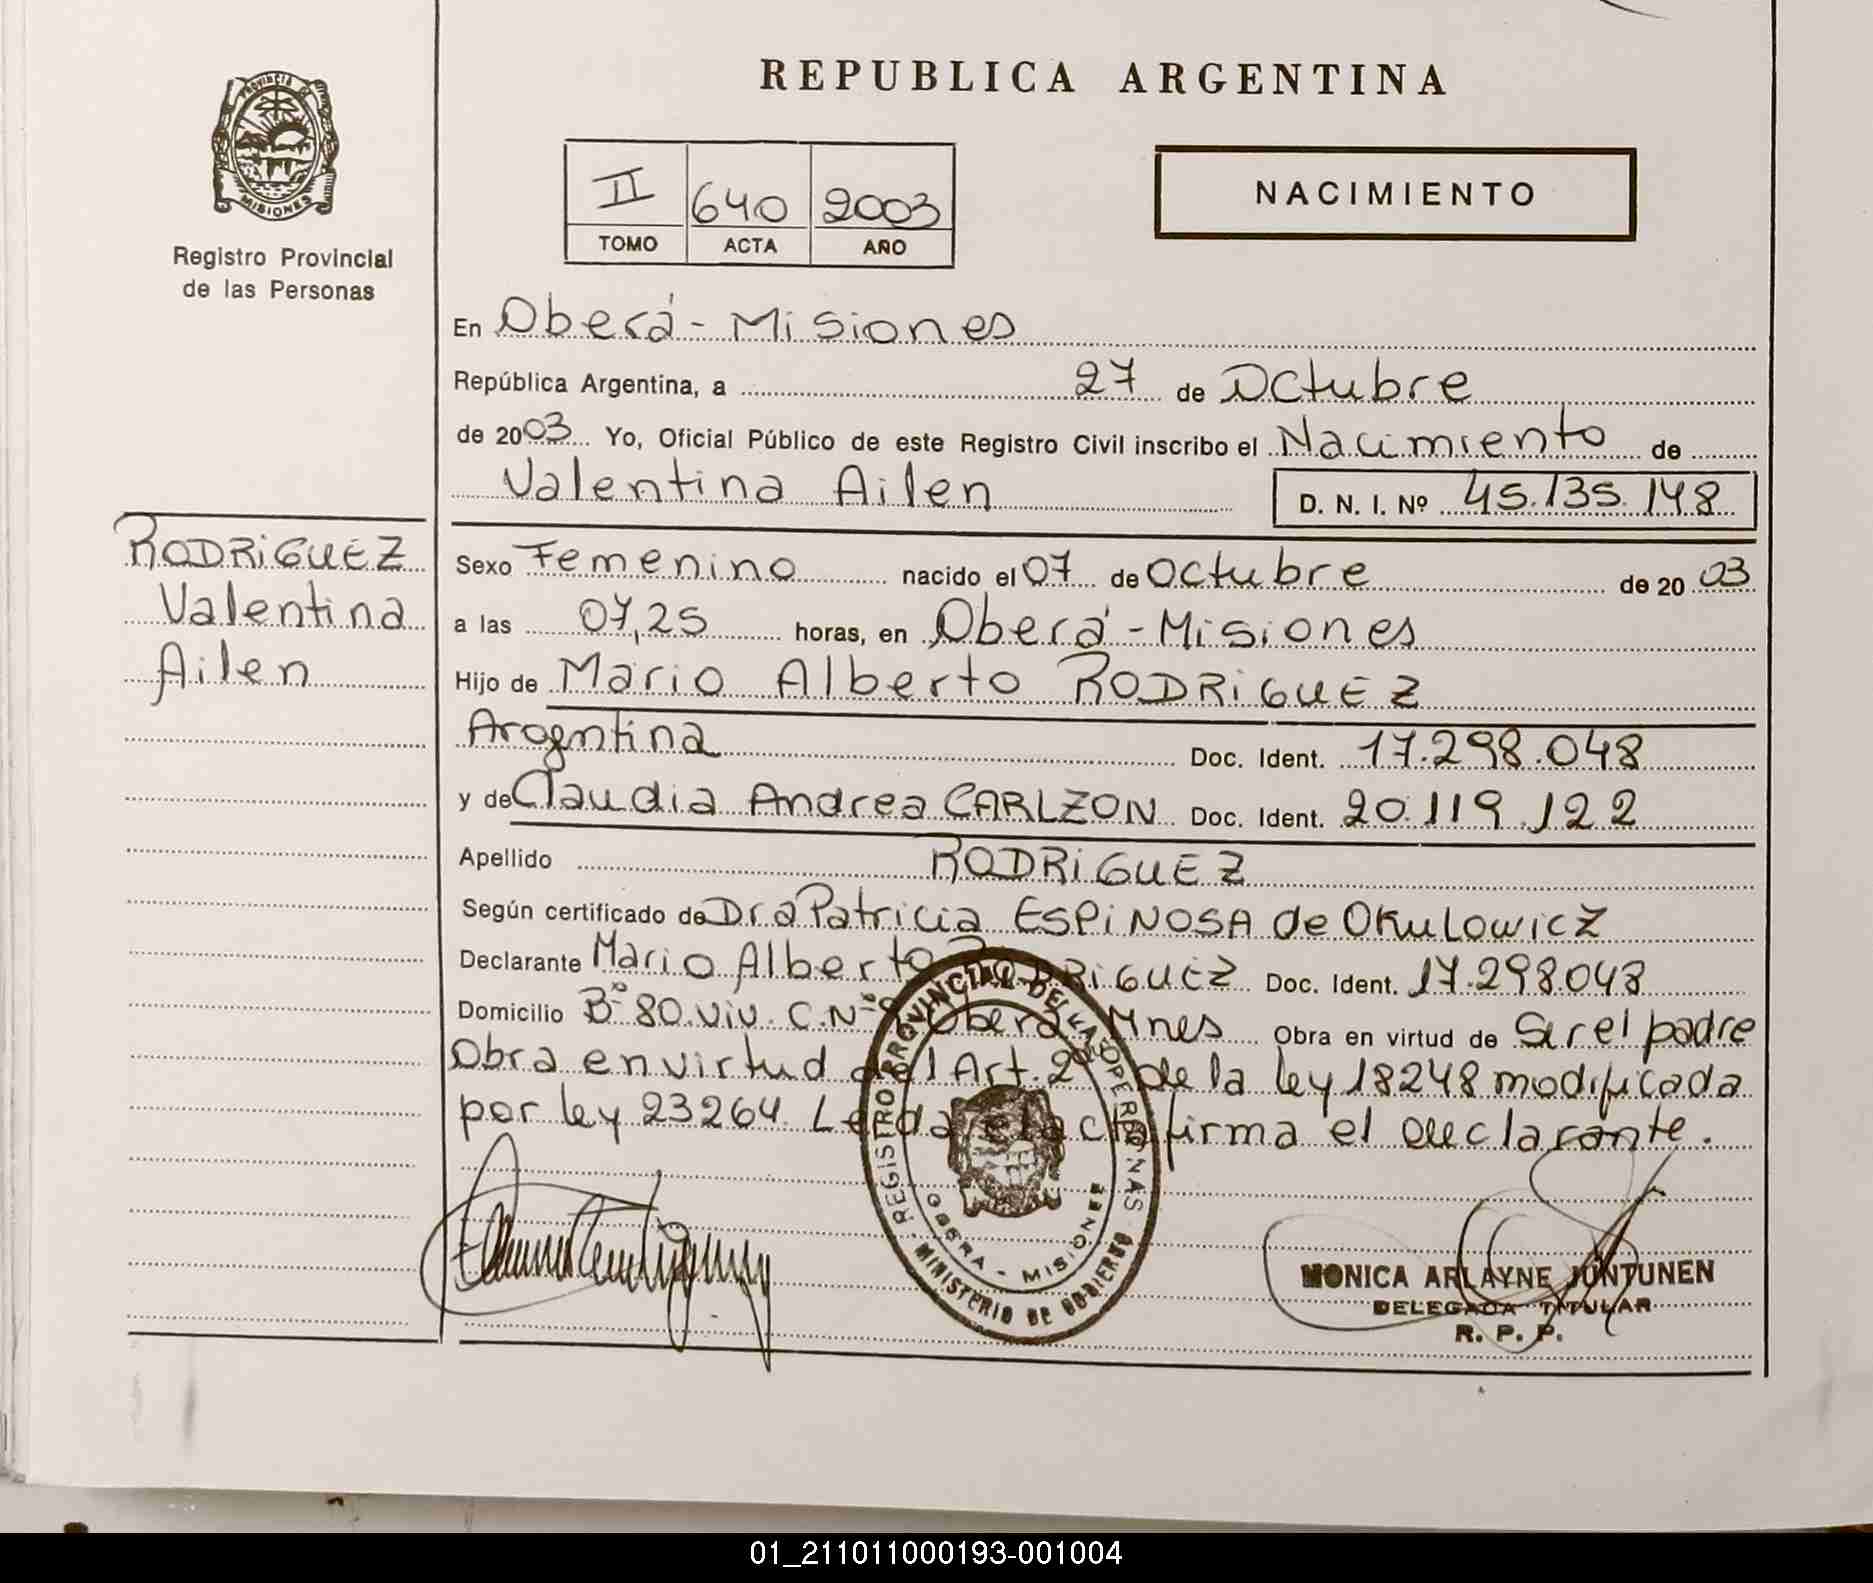 REPUBLICA ARGENTINA
PROVINCIA DE
MISIONES
Registro Provincial
de las Personas
II 640 2003
TOMO ACTA AÑO
NACIMIENTO
En Oberá - Misiones
República Argentina, a 27 de Octubre
de 2003 Yo, Oficial Público de este Registro Civil inscribo el Nacimiento de
Valentina Ailen D. N. I. Nº 45.135.148
RODRIGUEZ
Valentina
Ailen
Sexo Femenino nacido el 07 de Octubre de 20 03
a las 07,25 horas, en Oberá - Misiones
Hijo de Mario Alberto RODRIGUEZ
Argentina Doc. Ident. 17.298.048
y de Claudia Andrea CARLZON Doc. Ident. 20.119.122
Apellido RODRIGUEZ
Según certificado de Dra Patricia ESPINOSA de OKULOWICZ
Declarante Mario Alberto RODRIGUEZ Doc. Ident. 17.298.048
Domicilio Bº 80 viv. C.Nº Oberá Mnes Obra en virtud de Ser el padre
Obra en virtud del Art. 2º de la ley 18248 modificada
por ley 23264. Leida el acta firma el declarante.
REGISTRO PROVINCIAL DE LAS PERSONAS
OBERA - MISIONES
MINISTERIO DE GOBIERNO
MONICA ARLAYNE JUNTUNEN
DELEGADA TITULAR
R. P. P.
01_211011000193-001004